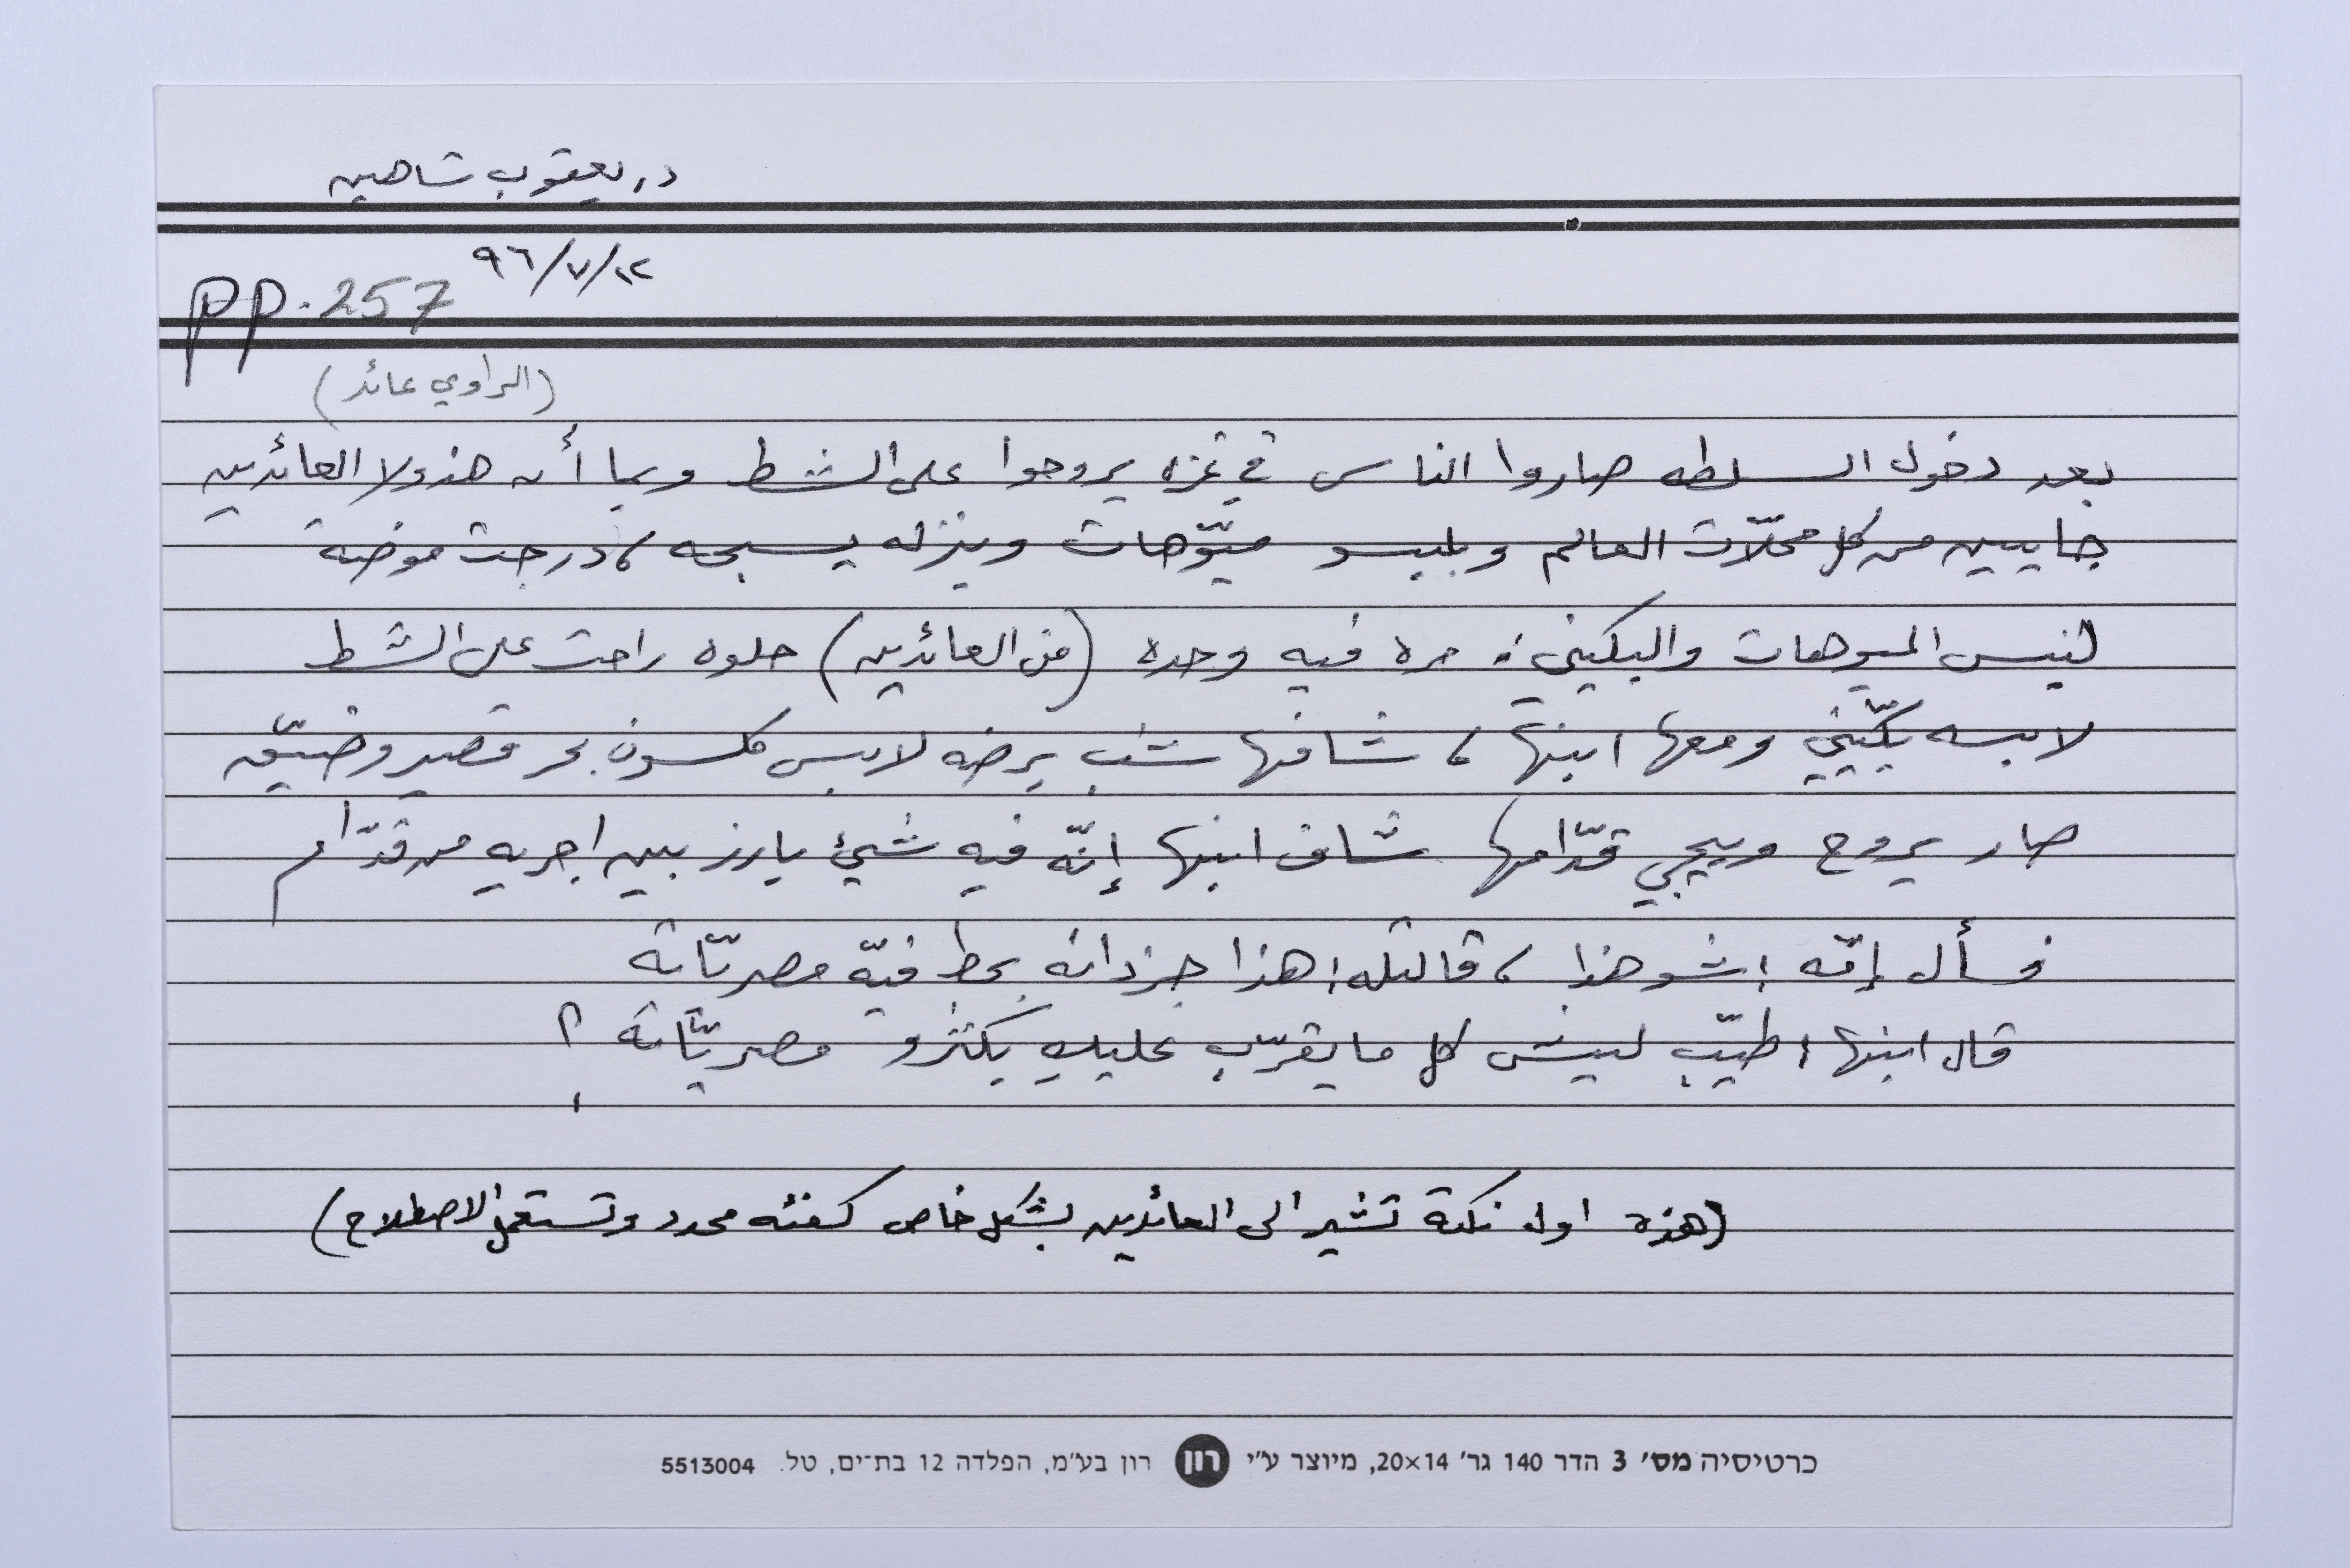 د. يعقوب شاهين
٩٦/٧/١٢
pp. 257
(الراوي عائد)
بعد دخول السلطه صاروا الناس في غزه يروحوا على الشط وبما أن هذولا العائدين
جايين من كل محلّات العالم وبلبسو ميّوهات وينزله يسبحه، درجت موضة
لبس الميوهات والبكيني. مره فيه وحده (من العائدين) حلوه راحت على الشط
لابسه بكّيني ومعها ابنها، شافها شب برضه لابس كلسون بحر قصير وضيّق
صار يروح وييجي قدّامها شاف ابنها إنّه فيه شيئ بارز بين اجريه من قدّام
فسأل إمّه: شو هذا، قالتله: هذا جزدانه بحط فيّه مصريّاته
قال ابنها: طيّب ليش كل ما يقرّب عليكِ بكثرو مصريّاته؟!
(هذه اول نكتة تشير الى العائدين بشكل خاص كفئه محدد وتستعمل الاصطلاح)
כרטיסיה מס׳ 3 הדר 140 גר׳ 20×14, מיוצר ע״י רון רון בע״מ, הפלדה 12 בת־ים, טל. 5513004